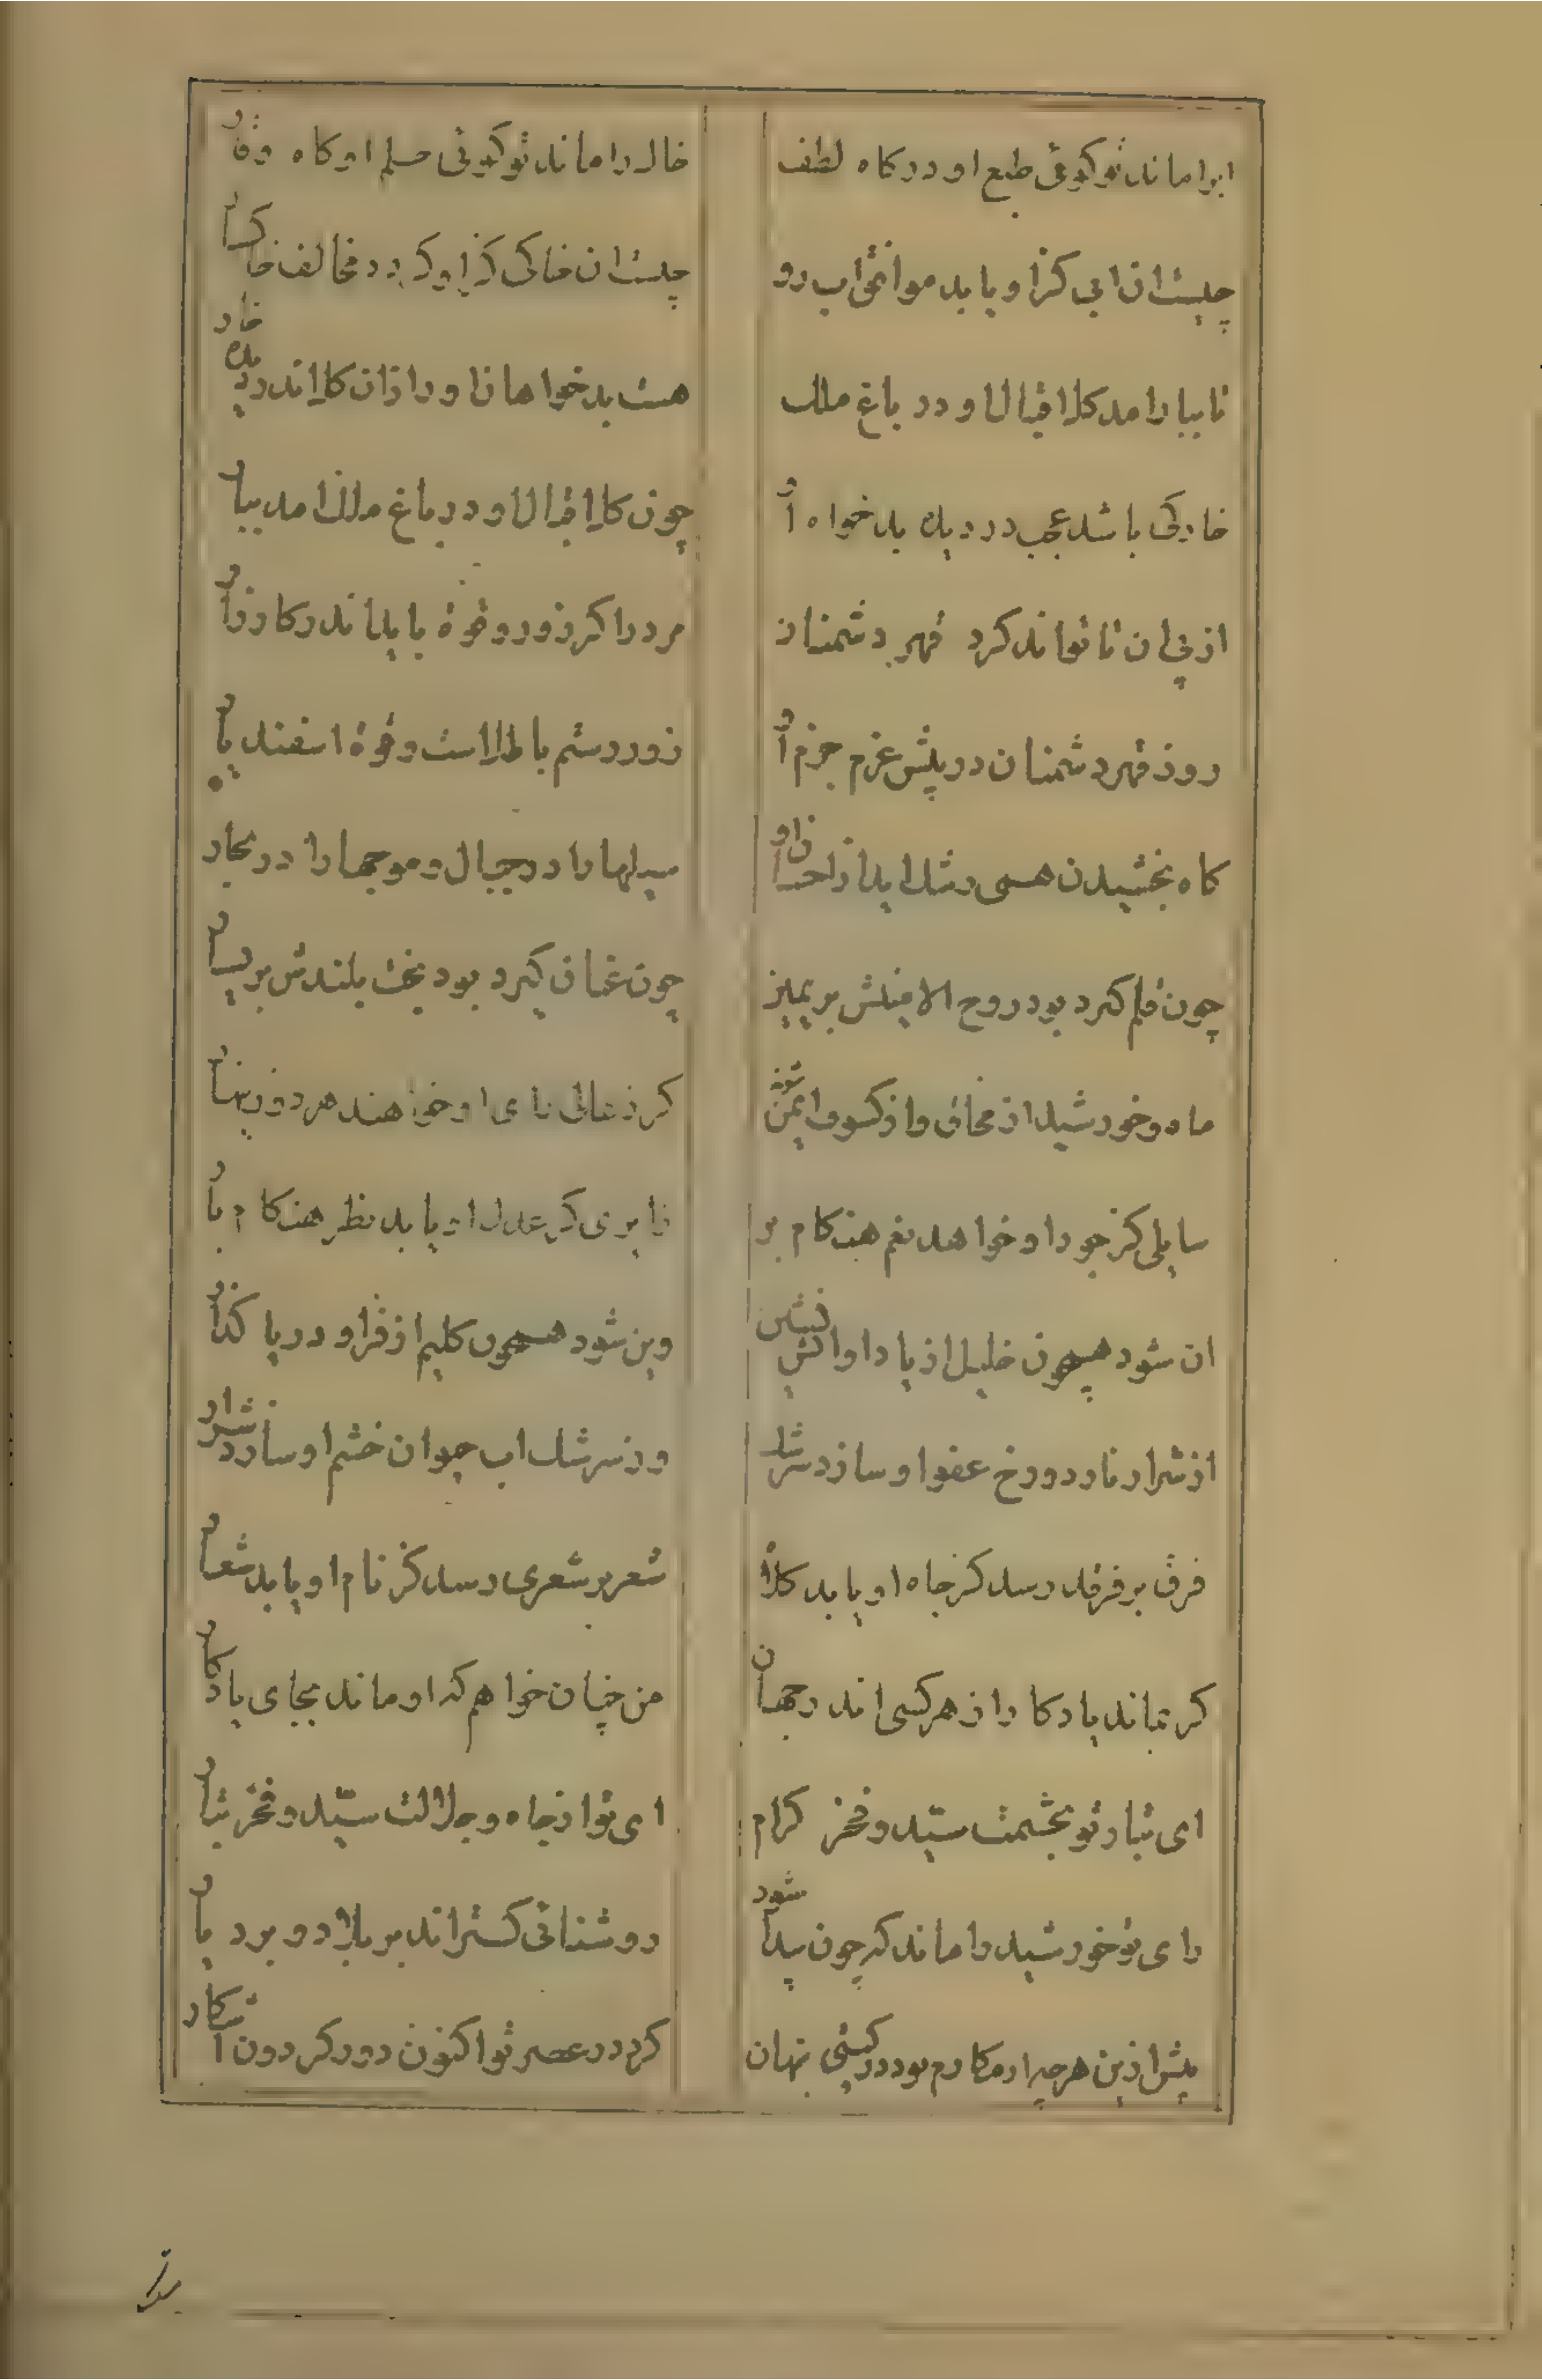 ابرا ماند تو کوئی طبع او در کاه لطف
خاک را ماند تو کوئی حلم او کاه وقار
چیست ان ابی کزاو یابد موافق اب رو
چیست ان خاکی کزاو کردد مخالف خاکسار
تا ببار امد کل اقبال او در باغ ملک
هست بدخواهان او را زان کل اندر دیده خار
خار کی باشد عجب در دیده بدخواه او
چون کل اقبال او در باغ ملک امد ببار
از پی ان تا تواند کرد قهر دشمنان
مرد را کر زور و قوة باید اندر کارزار
روز قهر دشمنان در پیش عزم جزم او
زور رستم باطل است و قوة اسفندیار
کاه بخشیدن همی رشک اید از احسان او
سیلها را در جبال و موجها را در بحار
چون قلم کیرد بود روح الامینش بر یمین
چون عنان کیرد بود بخت بلندش بر یسار
ماه و خورشید از محاق و از کسوف ایمن شوند
کر ز عالی رای او خواهند هر دو زینهار
سایلی کز جود او خواهد نعم هنکام بر
زایری کز عدل او یابد نظر هنکام بار
ان شود همچون خلیل از یاد او اتش نشین
وین شود همچون کلیم از فر او دریا کذار
از شرار نار دوزخ عفو او سازد سرشک
وز سرشک اب حیوان خشم او سازد شرار
فرق بر فرقد رسد کز جاه او یابد کلاه
شعر بر شعری رسد کز نام او یابد شعار
کر بماند یادکار از هر کسی اندر جهان
من چنان خواهم که او ماند بجای یادکار
ای تبار تو بحشمت سید و فخر کرام
ای تو از جاه و جلالت سید و فخر تبار
رای تو خورشید را ماند که چون پیدا شود
روشنائی کستراند بر بلاد و بر دیار
پیش ازین هرچه از مکارم بود در کیتی نهان
کرد در عصر تو اکنون دور کردون اشکار